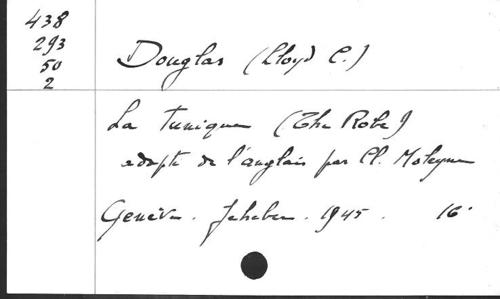 438
293
50
2
Douglas (Lloyd C.)
La Tunique (The Robe)
adapté de l'anglais par Cl. Moleyne
Genève. Jeheber. 1945. 16°